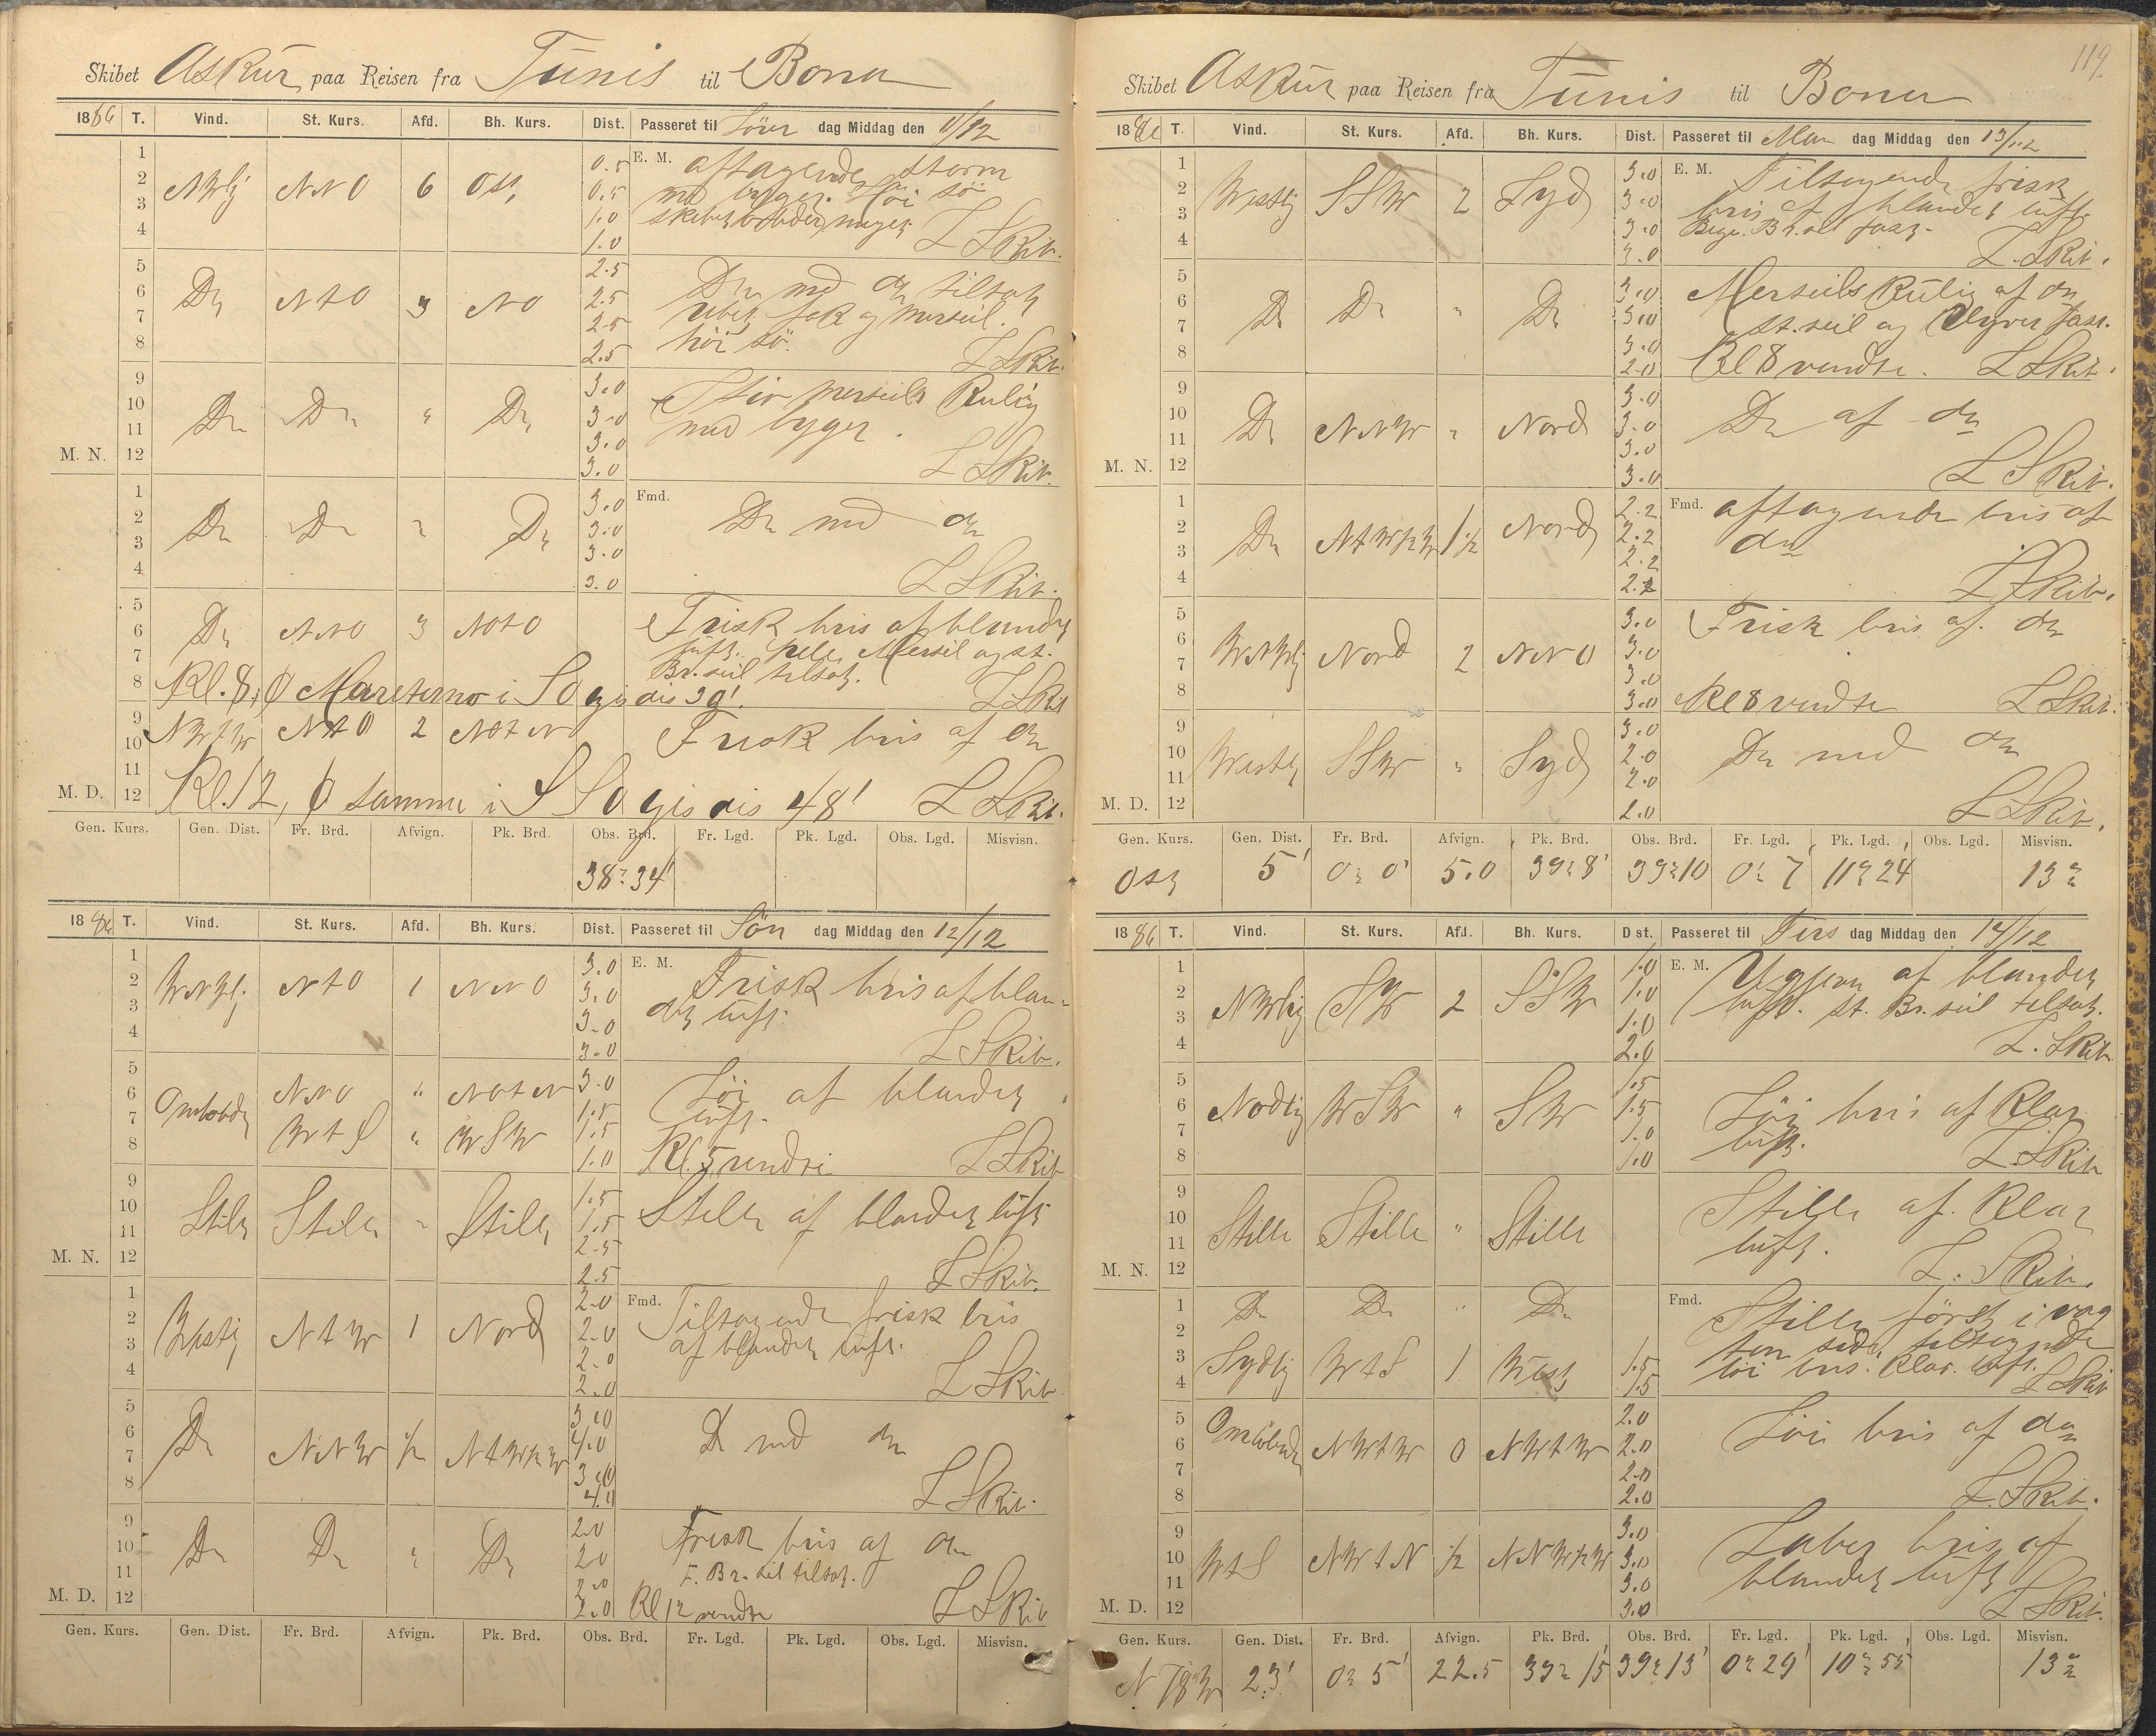 Skibet Askur paa Reisen fra Tunis til Bona
1886 T. Vind. St. Kurs. Afd. Bh. Kurs. Dist. Passeret til Löver dag Middag den 11/12
1 0.5 E. M. aftagende storm
2 NWlig NNO 6 Ost 0.5 med byger. Höi sö
3 1.0 skibet arbeider meget
4 1.0 L Skib.
5 2.5 Do med do tilsat
6 Do NtO 3 NO 2.5 rebet fok og merseil.
7 2.5 höi sö.
8 2.5 L Skib.
9 3.0 Stiv merseils Kuling
10 Do Do " Do 3.0 med byger.
11 3.0
M. N. 12 3.0 L Skib.
1 3.0 Fmd. Do med do
2 Do Do " Do 3.0
3 3.0
4 3.0 L Skib.
5 Frisk bris af blandet
6 Do NNO 3 NOtO luft. hele Merseil og st.
7 Br. seil tilsat.
8 Kl. 8, Maretimo i SO gis dis 39'. L Skib
9 NWtW NtO 2 NOtN Frisk bris af do
10
11
M. D. 12 Kl. 12, samme i SSO gis dis 48' L Skib.
Gen. Kurs. Gen. Dist. Fr. Brd. Afvign. Pk. Brd. Obs. Brd. Fr. Lgd. Pk. Lgd. Obs. Lgd. Misvisn.
38° 34'
1886 T. Vind. St. Kurs. Afd. Bh. Kurs. Dist. Passeret til Sön dag Middag den 12/12
1 3.0 E. M. Frisk bris af blan-
2 WNWl. NtO 1 NNO 3.0 det luft.
3 3.0
4 3.0 L Skib.
5 3.0 Löi af blandet
6 Omlobde NNO " NOtN 1.5 luft.
7 WtS " WSW 1.5
8 1.0 Kl. 5 vendte L Skib
9 1.5 Stille af blandet luft
10 Stille Stille " Stille 1.5
11 2.5
M. N. 12 2.5 L Skib.
1 2.0 Fmd. Tiltagende frisk bris
2 Westlig NtW 1 Nord 2.0 af blandet luft.
3 2.0
4 2.0 L Skib
5 3.0 Do med do
6 Do NNW 1/2 NtW1/2W 4.0
7 3.0
8 4.0 L Skib.
9 2.0 Frisk bris af do
10 Do Do " Do 2.0 F. Br. seil tilsat.
11 2.0
M. D. 12 2.0 Kl 12 vendte L Skib
Gen. Kurs. Gen. Dist. Fr. Brd. Afvign. Pk. Brd. Obs. Brd. Fr. Lgd. Pk. Lgd. Obs. Lgd. Misvisn.
119.
Skibet Askur paa Reisen fra Tunis til Bona
1886 T. Vind. St. Kurs. Afd. Bh. Kurs. Dist. Passeret til Man dag Middag den 13/12
1 3.0 E. M. Tiltagende frisk
2 Westlig SSW 2 Syd 3.0 bris af blandet luft.
3 3.0 Bege. Br. seil fast.
4 3.0 L. Skib.
5 3.0 Merseils Kuling af do
6 Do Do " Do 3.0 st. seil og Klyver fast.
7 3.0
8 2.0 Kl 8 vendte. L Skib.
9 3.0 Do af do
10 Do NNW " Nord 3.0
11 3.0
M. N. 12 3.0 L Skib.
1 2.2 Fmd. aftagende bris af
2 Do NtW1/2W 1 1/2 Nord 2.2 do
3 2.2
4 2.2 L Skib.
5 3.0 Frisk bris af do
6 WNWlig Nord 2 NNO 3.0
7 3.0
8 3.0 Kl 8 vendte L Skib.
9 3.0 Do med do
10 Westlig SSW " Syd 2.0
11 2.0
M. D. 12 2.0 L Skib.
Gen. Kurs. Gen. Dist. Fr. Brd. Afvign. Pk. Brd. Obs. Brd. Fr. Lgd. Pk. Lgd. Obs. Lgd. Misvisn.
Ost 5' 0° 0' 5.0 39° 8' 39° 10 0° 7' 11° 24' 13°
1886 T. Vind. St. Kurs. Afd. Bh. Kurs. Dist. Passeret til Tirs dag Middag den 14/12
1 1.0 E. M. af blandet
2 NWlig SW 2 SSW 1.0 luft. st. Br. seil tilsat.
3 1.0
4 2.0 L. Skib.
5 1.5
6 Nodlig WSW " SW 1.5 Löi bris af Klar
7 1.0 luft.
8 1.0 L. Skib
9 Stille af Klar
10 Stille Stille " Stille luft.
11
M. N. 12 L. Skib.
1 Do Do " Do Fmd. Stille först i vag
2 ten side tiltagende
3 Sydlig WtS 1 West 1.5 löi bris. Klar luft.
4 1.5 L Skib
5 2.0 Löi bris af do
6 Omlöbende NWtW 0 NWtW 2.0
7 2.0
8 2.0 L. Skib.
9 3.0 Laber bris af
10 WtS NWtN 1/2 NNW1/2W 3.0 blandet luft
11 3.0
M. D. 12 3.0 L Skib.
Gen. Kurs. Gen. Dist. Fr. Brd. Afvign. Pk. Brd. Obs. Brd. Fr. Lgd. Pk. Lgd. Obs. Lgd. Misvisn.
N 78 W 23' 0° 5' 22.5 39° 15' 39° 13' 0° 29' 10° 55' 13°